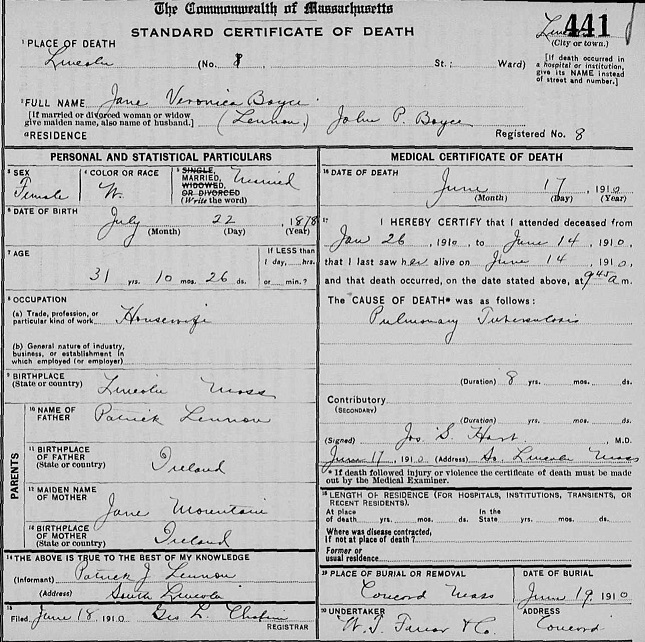 The Commonwealth of Massachusetts
STANDARD CERTIFICATE OF DEATH
441
(City or town.)
1 PLACE OF DEATH
Lincoln (No. 8 St.; Ward)
[If death occurred in a hospital or institution, give its NAME instead of street and number.]
2 FULL NAME Jane Veronica Boyce
[If married or divorced woman or widow give maiden name, also name of husband.] (Lennon) John P. Boyce
a RESIDENCE Registered No. 8
PERSONAL AND STATISTICAL PARTICULARS
3 SEX
Female
4 COLOR OR RACE
W.
5 SINGLE, MARRIED, WIDOWED, OR DIVORCED (Write the word) Married
6 DATE OF BIRTH
July 22, 1878
(Month) (Day) (Year)
7 AGE
31 yrs. 10 mos. 26 ds.
If LESS than 1 day, hrs. or min.?
8 OCCUPATION
(a) Trade, profession, or particular kind of work Housewife
(b) General nature of industry, business, or establishment in which employed (or employer)
9 BIRTHPLACE
(State or country) Lincoln Mass
PARENTS
10 NAME OF FATHER Patrick Lennon
11 BIRTHPLACE OF FATHER (State or country) Ireland
12 MAIDEN NAME OF MOTHER Jane Mountain
13 BIRTHPLACE OF MOTHER (State or country) Ireland
14 THE ABOVE IS TRUE TO THE BEST OF MY KNOWLEDGE
(Informant) Patrick J Lennon
(Address) South Lincoln
15 Filed June 18, 1910 Geo L. Chapin
REGISTRAR
MEDICAL CERTIFICATE OF DEATH
16 DATE OF DEATH
June 17, 1910
(Month) (Day) (Year)
17 I HEREBY CERTIFY that I attended deceased from
Jan 26, 1910, to June 14, 1910,
that I last saw her alive on June 14, 1910,
and that death occurred, on the date stated above, at 9 45 a m.
The *CAUSE OF DEATH* was as follows:
Pulmonary Tuberculosis
(Duration) 8 yrs. mos. ds.
Contributory
(SECONDARY)
(Duration) yrs. mos. ds.
(Signed) Jos. S. Hart, M.D.
June 17, 1910 (Address) So. Lincoln Mass
* If death followed injury or violence the certificate of death must be made out by the Medical Examiner.
18 LENGTH OF RESIDENCE (FOR HOSPITALS, INSTITUTIONS, TRANSIENTS, OR RECENT RESIDENTS).
At place of death yrs. mos. ds. In the State yrs. mos. ds.
Where was disease contracted, If not at place of death?
Former or usual residence
19 PLACE OF BURIAL OR REMOVAL
Concord Mass
DATE OF BURIAL
June 19, 1910
20 UNDERTAKER
ADDRESS
Concord